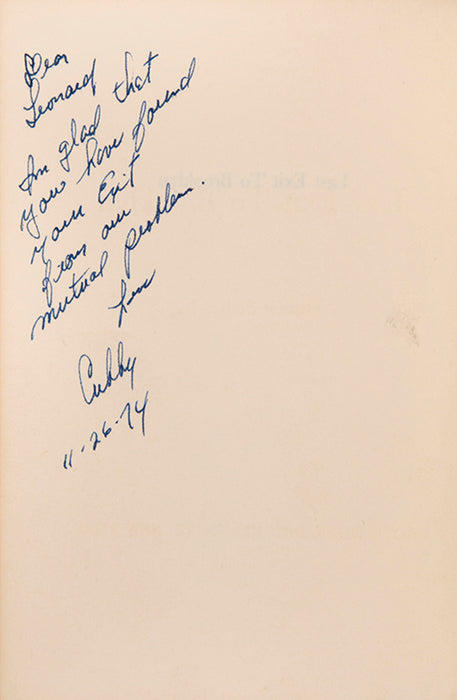 Dear
Leonard
I'm glad that
you have found
your Exit
from our
mutual problem.
Luv
Cubby
11-26-74
Last Exit To Brooklyn